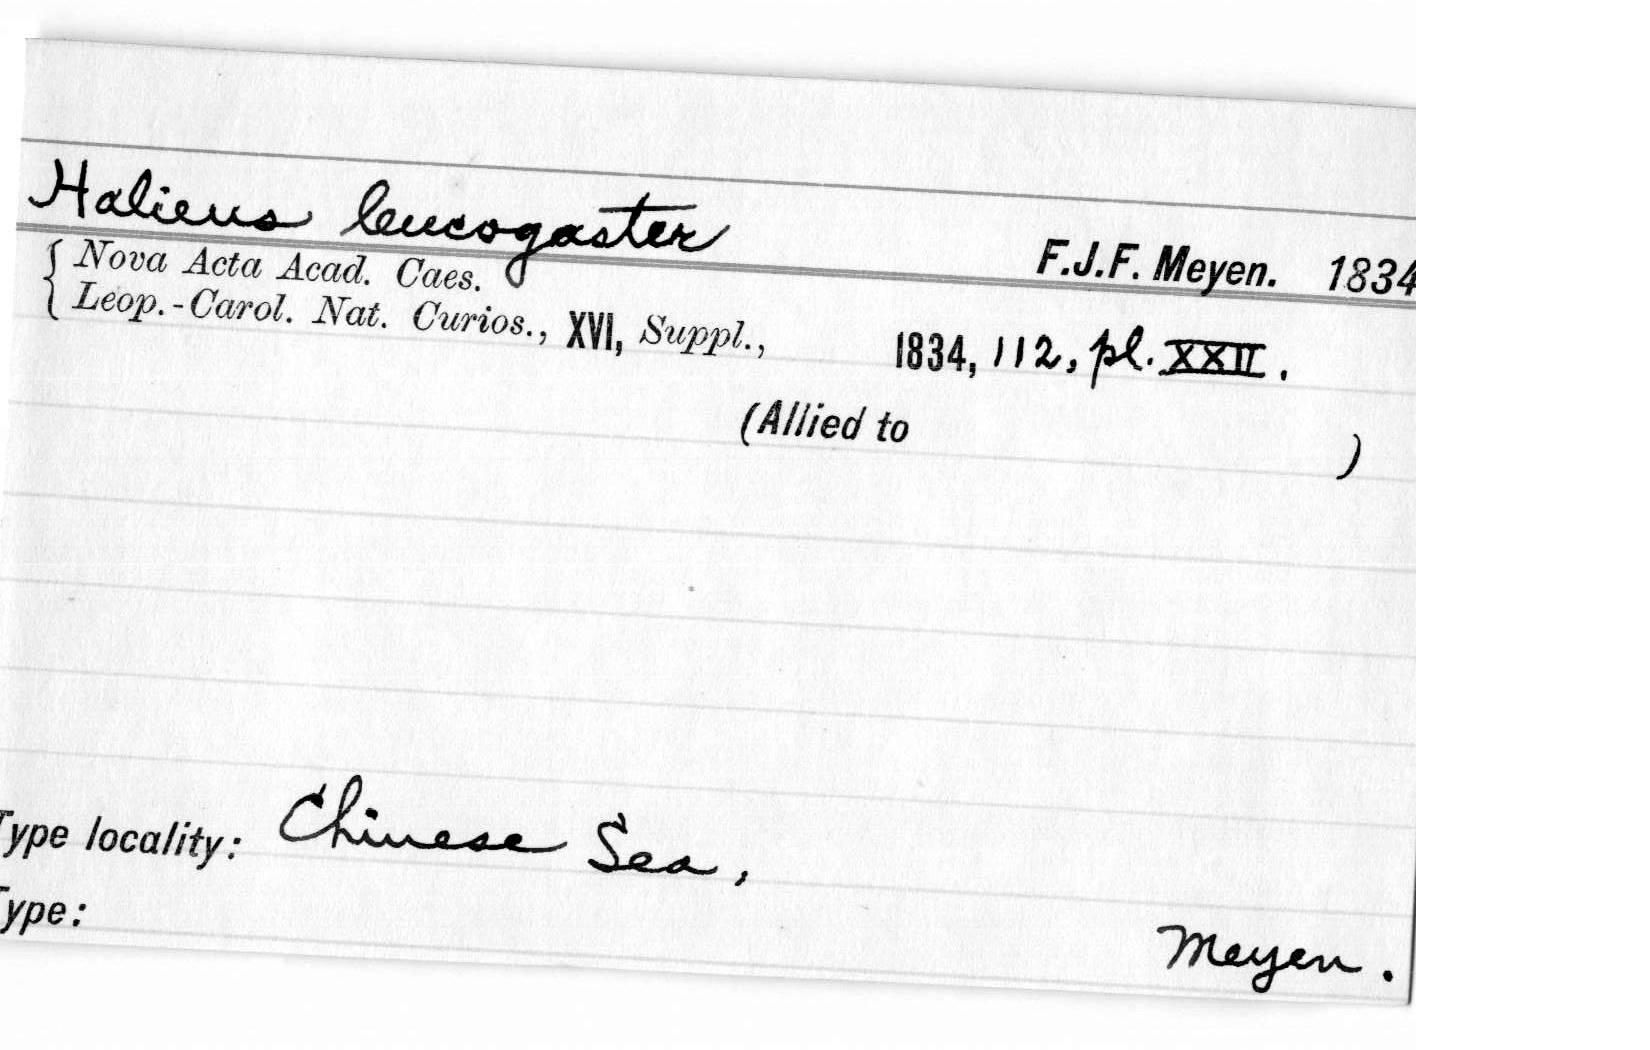 Halieus leucogaster F.J.F. Meyen. 1834
{ Nova Acta Acad. Caes.
Leop.-Carol. Nat. Curios., XVI, Suppl., 1834, 112, pl. XXII.
(Allied to )
Type locality: Chinese Sea,
Type:
Meyen.